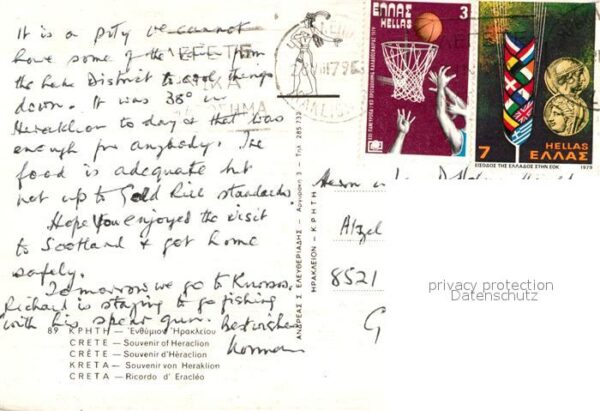 It is a pity we cannot
have some of the rain from
the Lake District to cool things
down. It was 38° in
Heraklion to day & that was
enough for anybody. The
food is adequate but
not up to Gold Rill standards
Hope you enjoyed the visit
to Scotland & got home
safely.
Tomorrow we go to Knossos.
Richard is staying to go fishing
with his spear gun. Best wishes
Norman
89 ΚΡΗΤΗ — Ἐνθύμιον Ἡρακλείου
CRETE — Souvenir of Heraclion
CRÈTE — Souvenir d'Héraclion
KRETA — Souvenir von Heraklion
CRETA — Ricordo d' Eracléo
ΑΝΔΡΕΑΣ Σ. ΕΛΕΥΘΕΡΙΑΔΗΣ - Αγυιαράκη 3 - Τηλ. 285 732
ΗΡΑΚΛΕΙΟΝ - ΚΡΗΤΗ
ΕΛΛΑΣ
HELLAS
3
7
HELLAS
ΕΛΛΑΣ
ΕΙΣΟΔΟΣ ΤΗΣ ΕΛΛΑΔΟΣ ΣΤΗΝ ΕΟΚ
1979
8521
G
privacy protection
Datenschutz